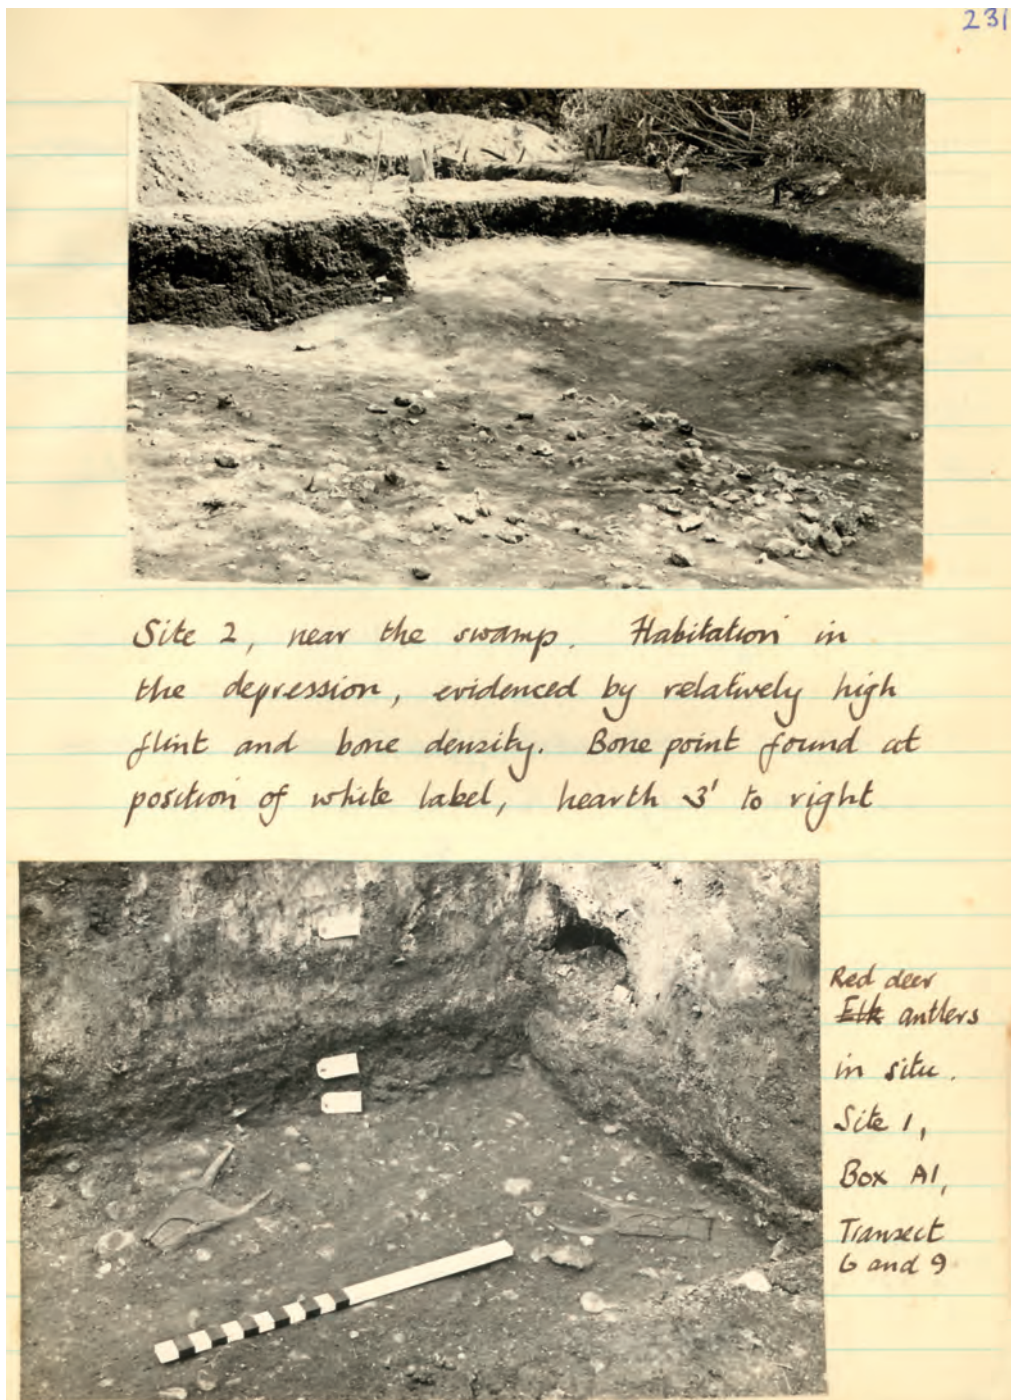 231
Site 2, near the swamp. Habitation in
the depression, evidenced by relatively high
flint and bone density. Bone point found at
position of white label, hearth 3' to right
Red deer
Elk antlers
in situ.
Site 1,
Box A1,
Transect
6 and 9